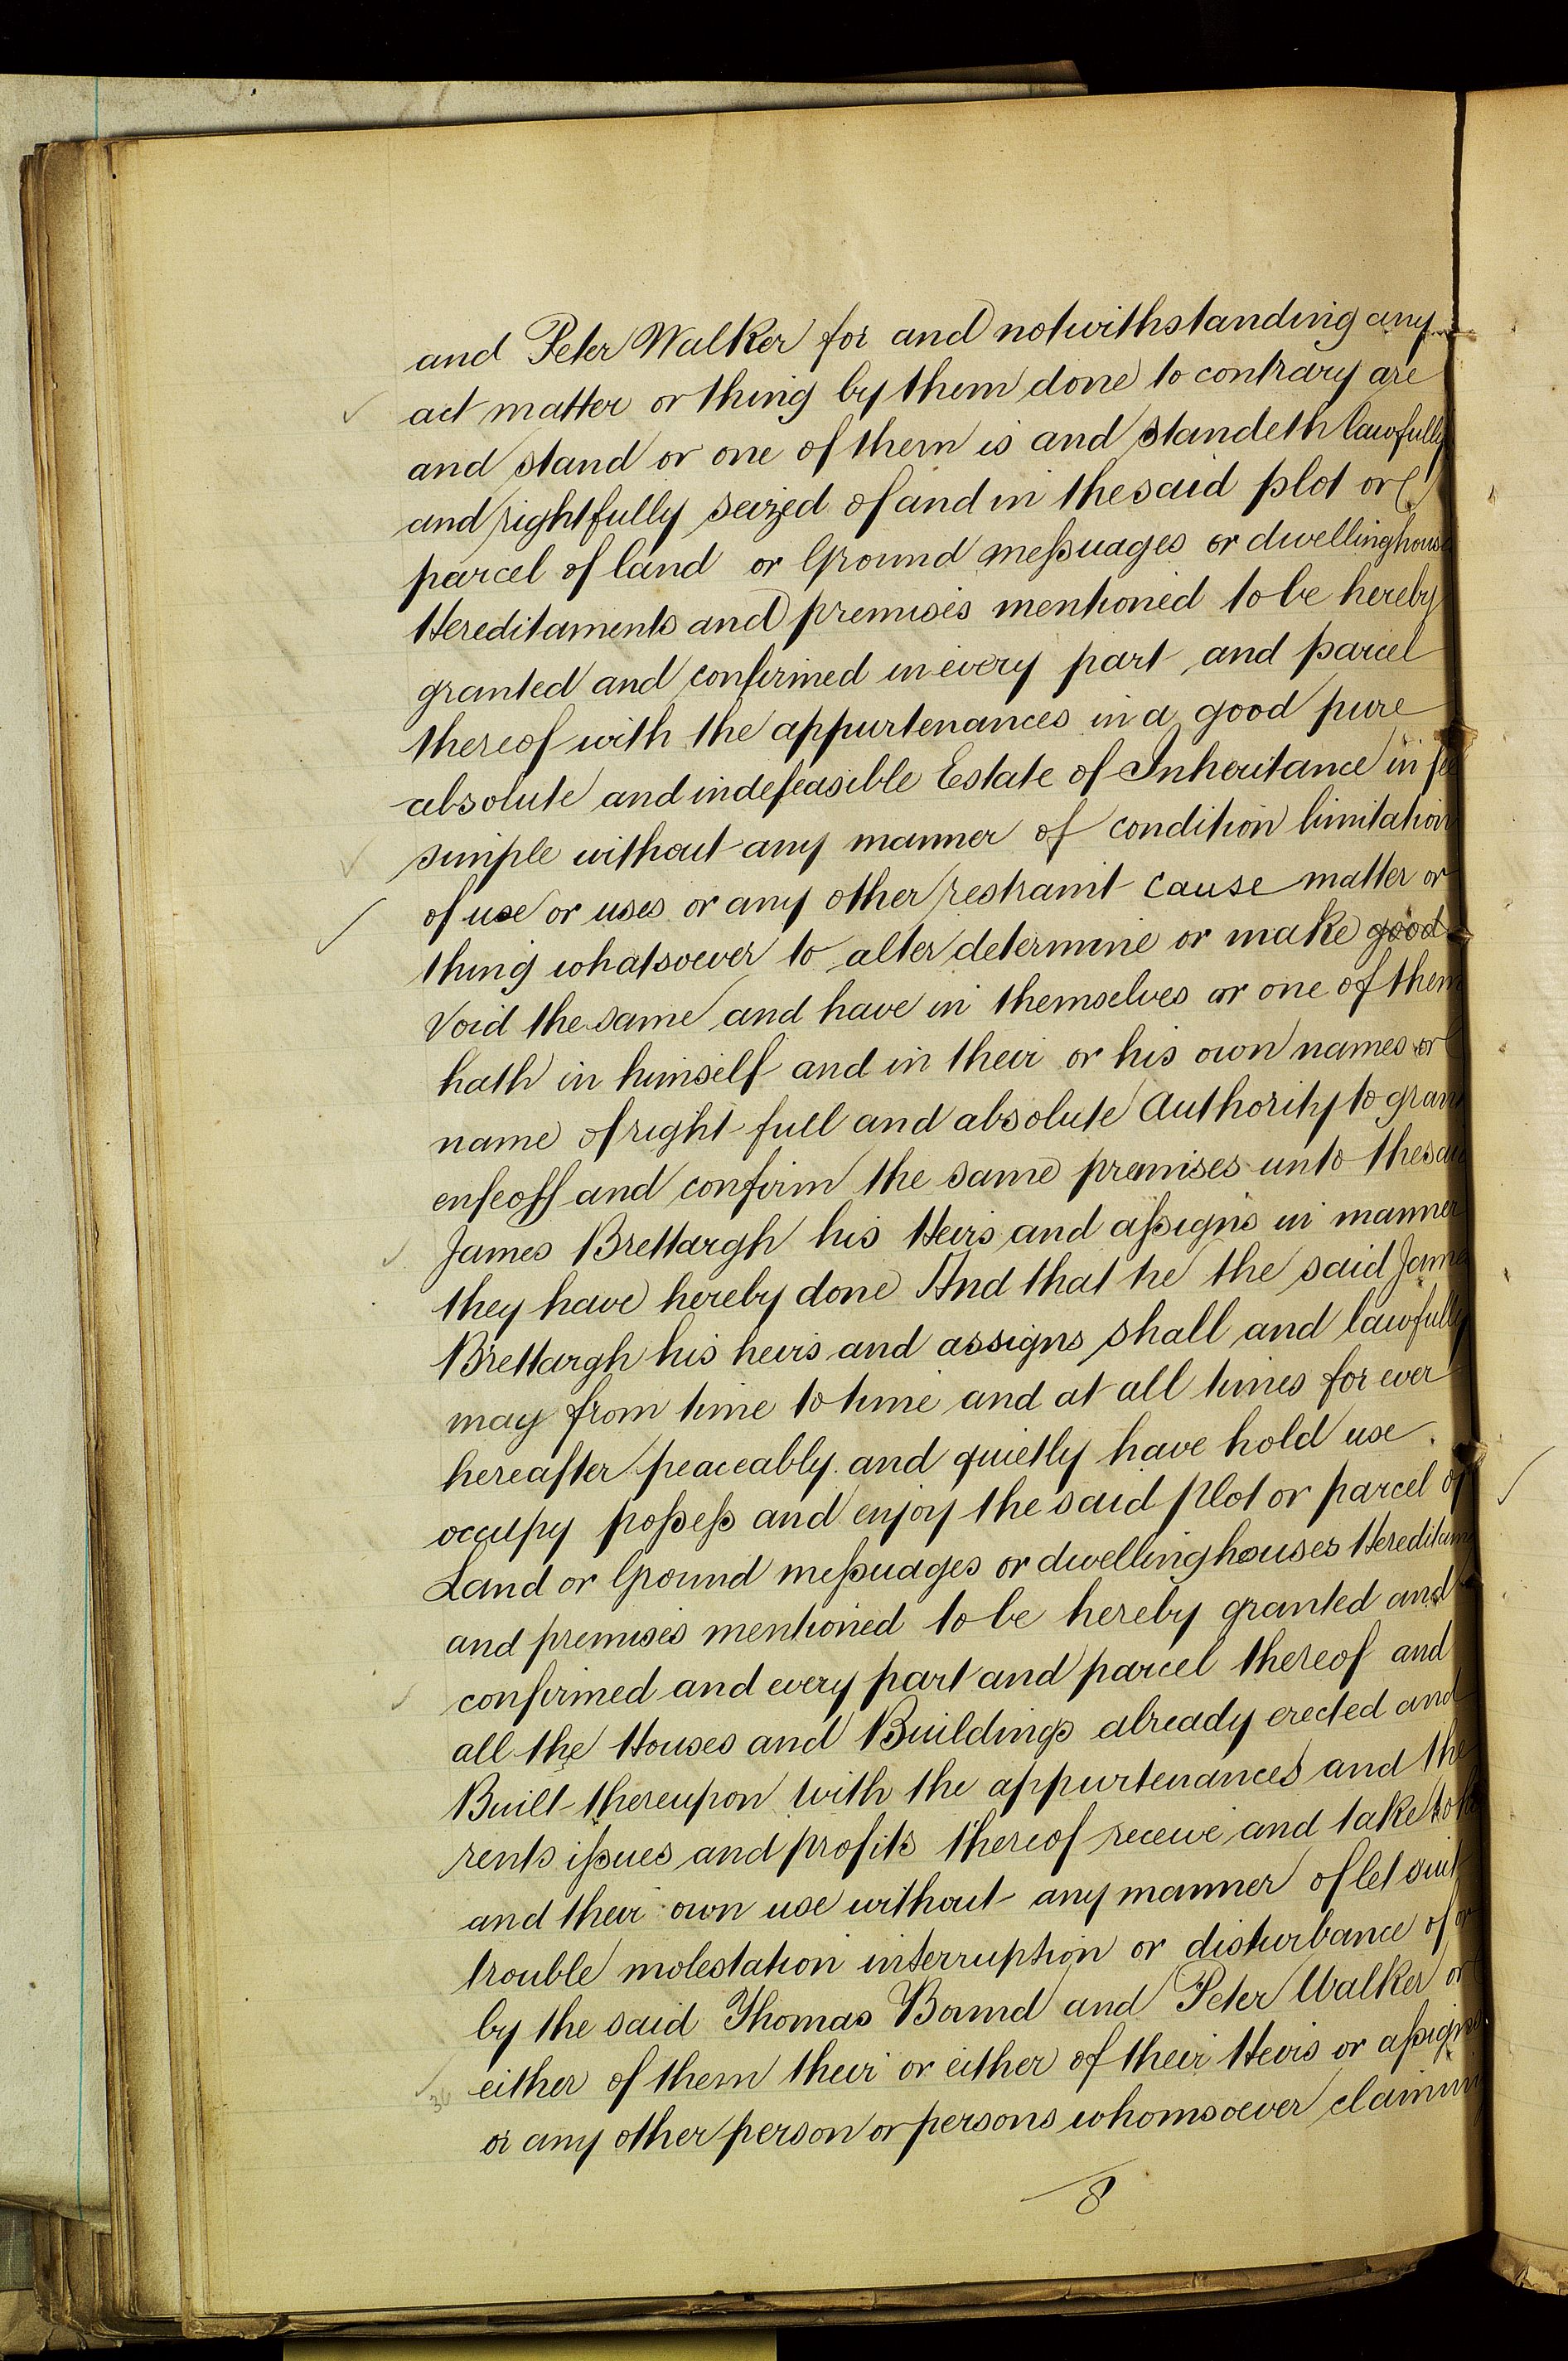 and Peter Walker for and notwithstanding any
act matter or thing by them done to contrary are
and stand or one of them is and standeth lawfully
and rightfully seized of and in the said plot or
parcel of land or Ground meßuages or dwellinghouse
Hereditaments and premises mentioned to be hereby
granted and confirmed in every part and parcel
thereof with the appurtenances in a good pure
absolute and indefeasible Estate of Inheritance in fee
simple without any manner of condition limitation
of use or uses or any other restraint cause matter or
thing whatsoever to alter determine or make good
Void the same and have in themselves or one of them
hath in himself and in their or his own names or
name of right full and absolute Authority to gran
enfeoff and confirm the same premises unto the sai
James Brettargh his Heirs and aßigns in manner
they have hereby done And that he the said Jame
Brettargh his heirs and assigns shall and lawfully
may from time to time and at all times for ever
hereafter peaceably and quietly have hold use
occupy poßeß and enjoy the said Plot or parcel of
Land or Ground meßuages or dwellinghouses Hereditam
and premises mentioned to be hereby granted and
confirmed and every part and parcel thereof and
all the Houses and Buildings already erected and
Built thereupon with the appurtenances and the
rents ißues and profits thereof receive and take to
and their own use without any manner of let suit
trouble molestation interruption or disturbance of or
by the said Thomas Bound and Peter Walker or
either of them their or either of their Heirs or aßigns
or any other person or persons whomsoever claimin
8